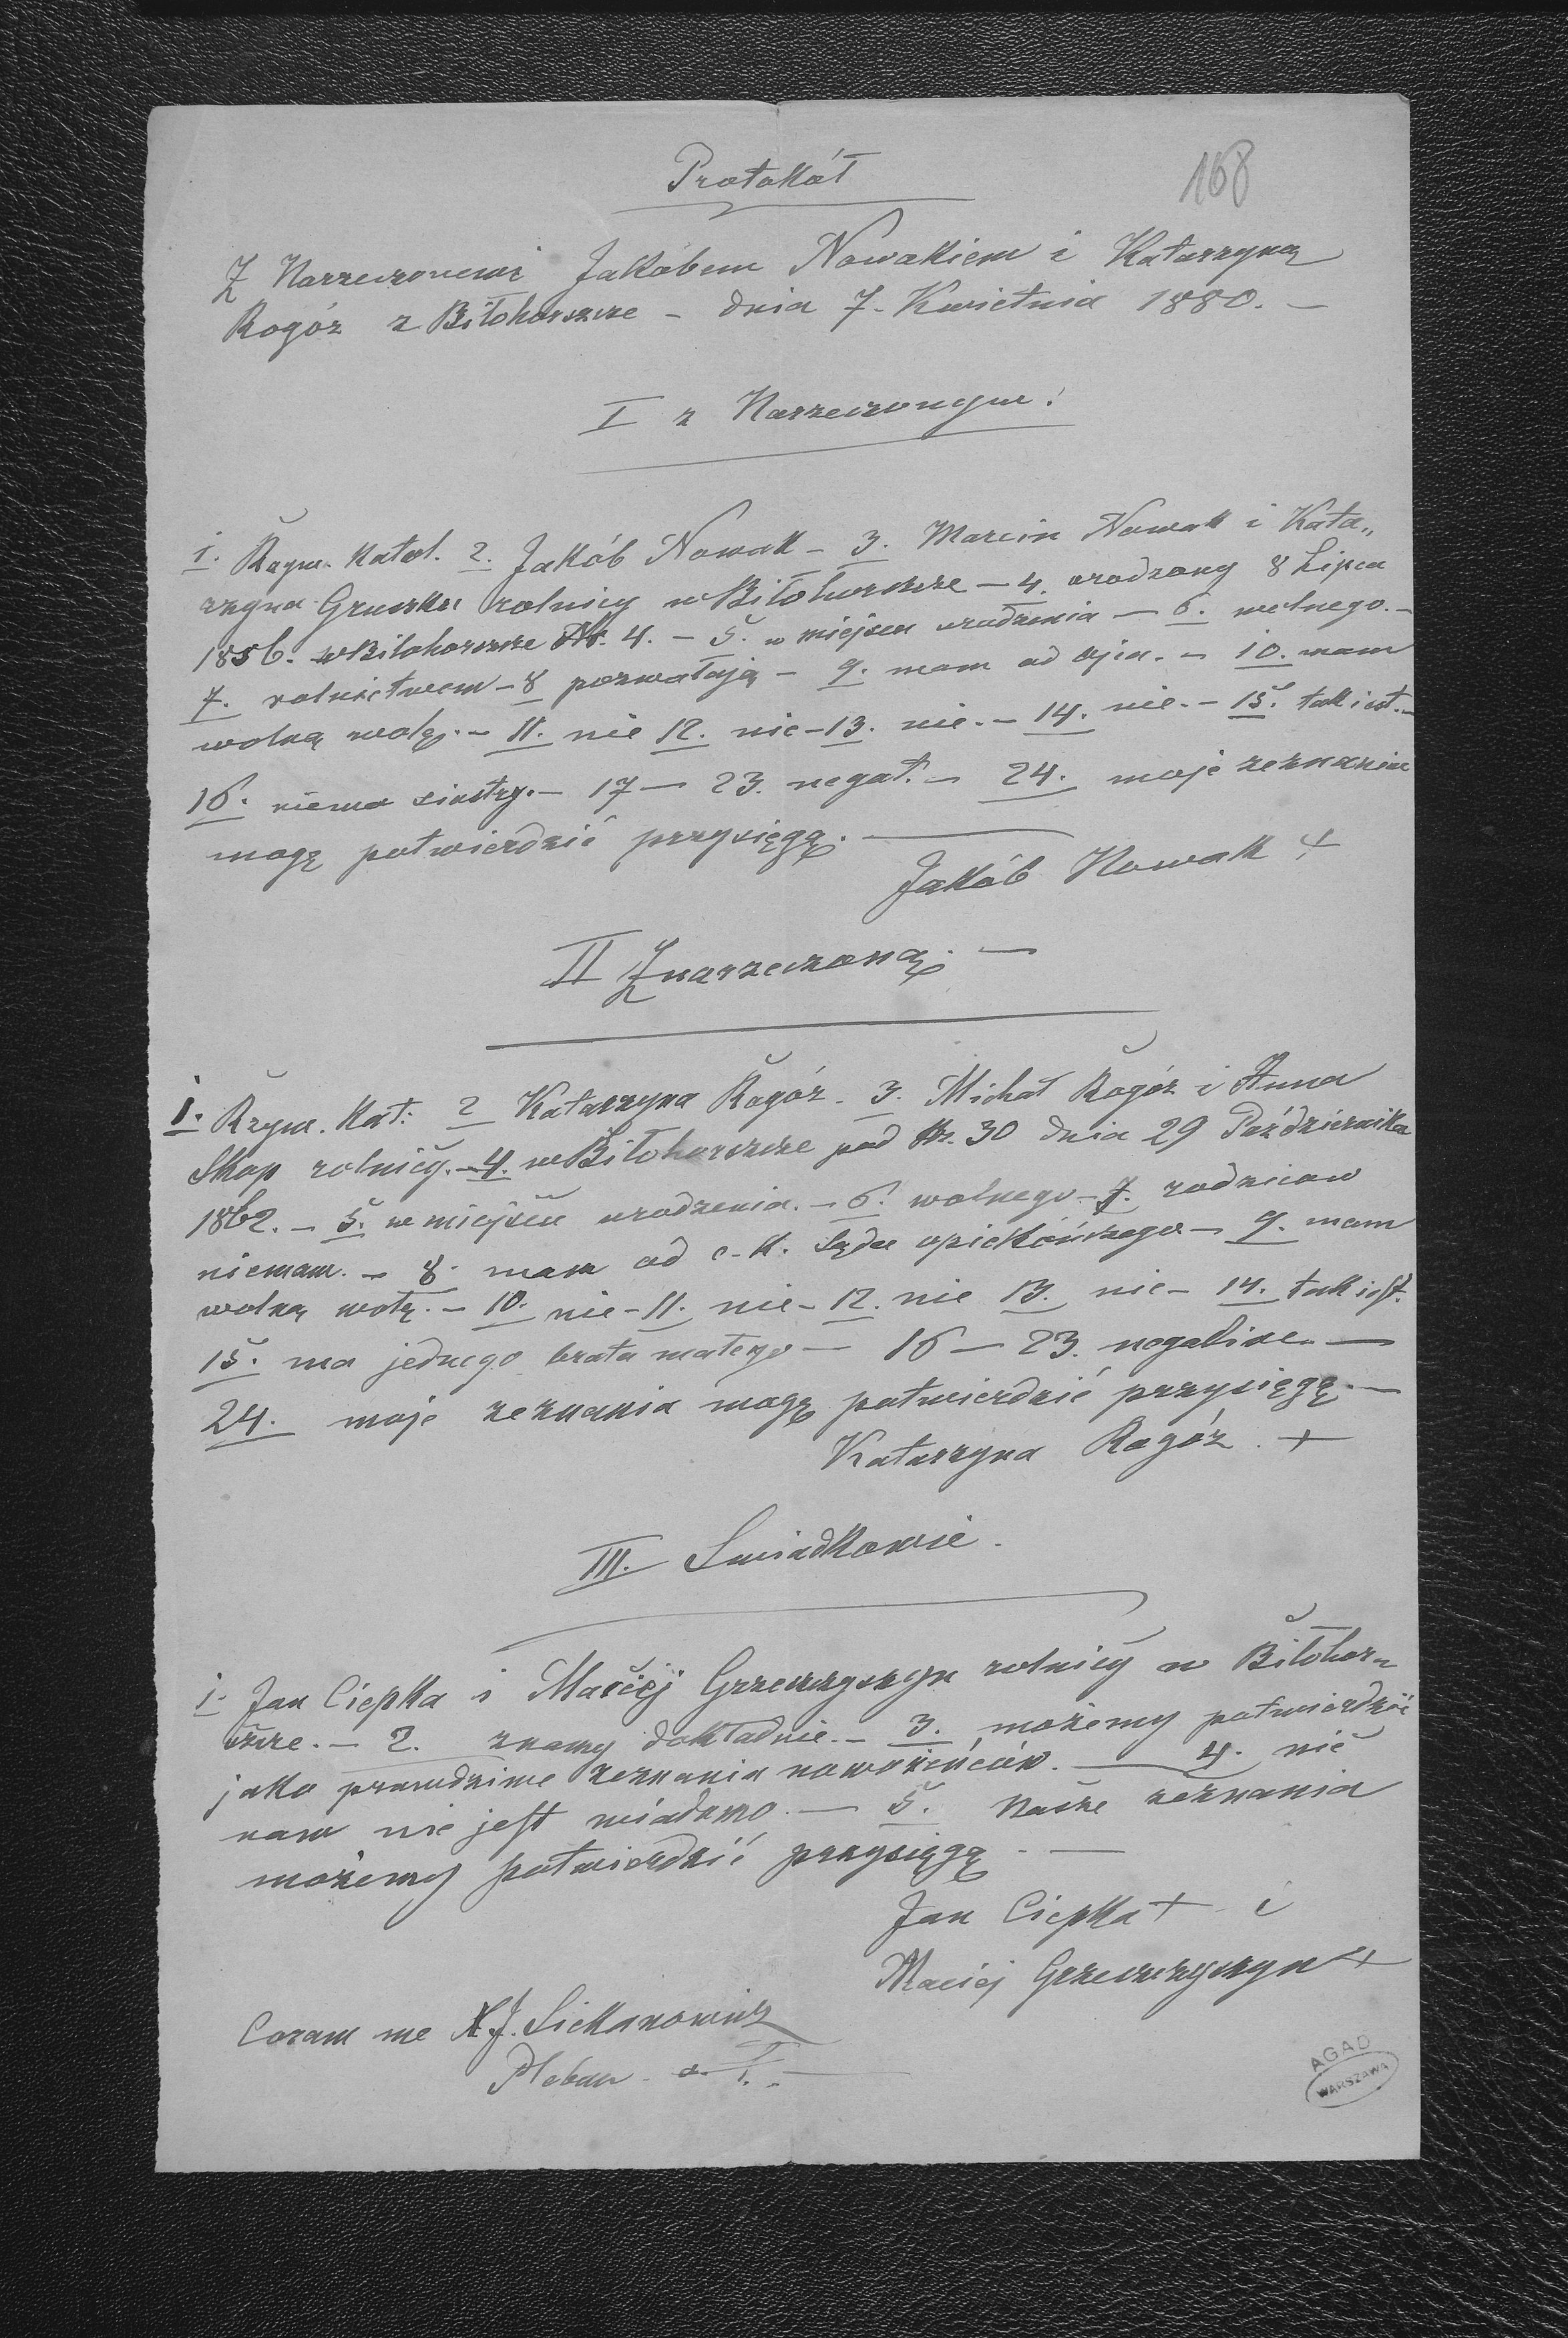 Protokół
168
Z Narzeczonemi Jakóbem Nowakiem i Katarzyną
Rogóz z Biłohorszcze - dnia 7. Kwietnia 1880. -
I z Narzeczonym.
1. Rzym. Katol. 2. Jakób Nowak - 3. Marcin Nowak i Kata„
rzyna Gruszka rolnicy w Biłohorszcze - 4. urodzony 8 Lipca
1856. w Biłohorszcze Nr. 4. - 5. w miejscu urodzenia - 6. wolnego. -
7. rolnictwem - 8 pozwalają - 9. mam od ojca. - 10. mam
wolną wolę. - 11. nie 12. nie - 13. nie. - 14. nie. - 15. tak jest. -
16. niema siostry. - 17 - 23. negat. - 24. moje zeznanie
mogę potwierdzić przysięgą.
Jakób Nowak +
II Z narzeczoną. -
1. Rzym. Kat: 2 Katarzyna Rogóz - 3. Michał Rogóz i Anna
Skop rolnicy. - 4. w Biłohorszcze pod Nr. 30 dnia 29 Października
1862. - 5. w miejscu urodzenia. - 6. wolnego - 7. rodziców
niemam. - 8. mam od c. k. Sądu opiekóńczego - 9. mam
wolną wolę. - 10. nie - 11. nie - 12. nie 13. nie - 14. tak jest.
15. ma jednego brata małego - 16 - 23. negative. -
24. moje zeznania mogę potwierdzić przysięgą. -
Katarzyna Rogóz. +
III. Swiadkowie.
1. Jan Ciepka i Maciej Grzeszczyszyn rolnicy w Biłohor„
szcze. - 2. znamy dokładnie. - 3. możemy potwierdzić
jako prawdziwe zeznania nowożeńców. - 4. nic
nam nie jest wiadomo. - 5. Nasze zeznania
możemy potwierdzić przysięgą. -
Jan Ciepka + i
Maciej Grzeszczyszyn +
Coram me X. J. Siekanowicz
Pleban
AGAD
WARSZAWA